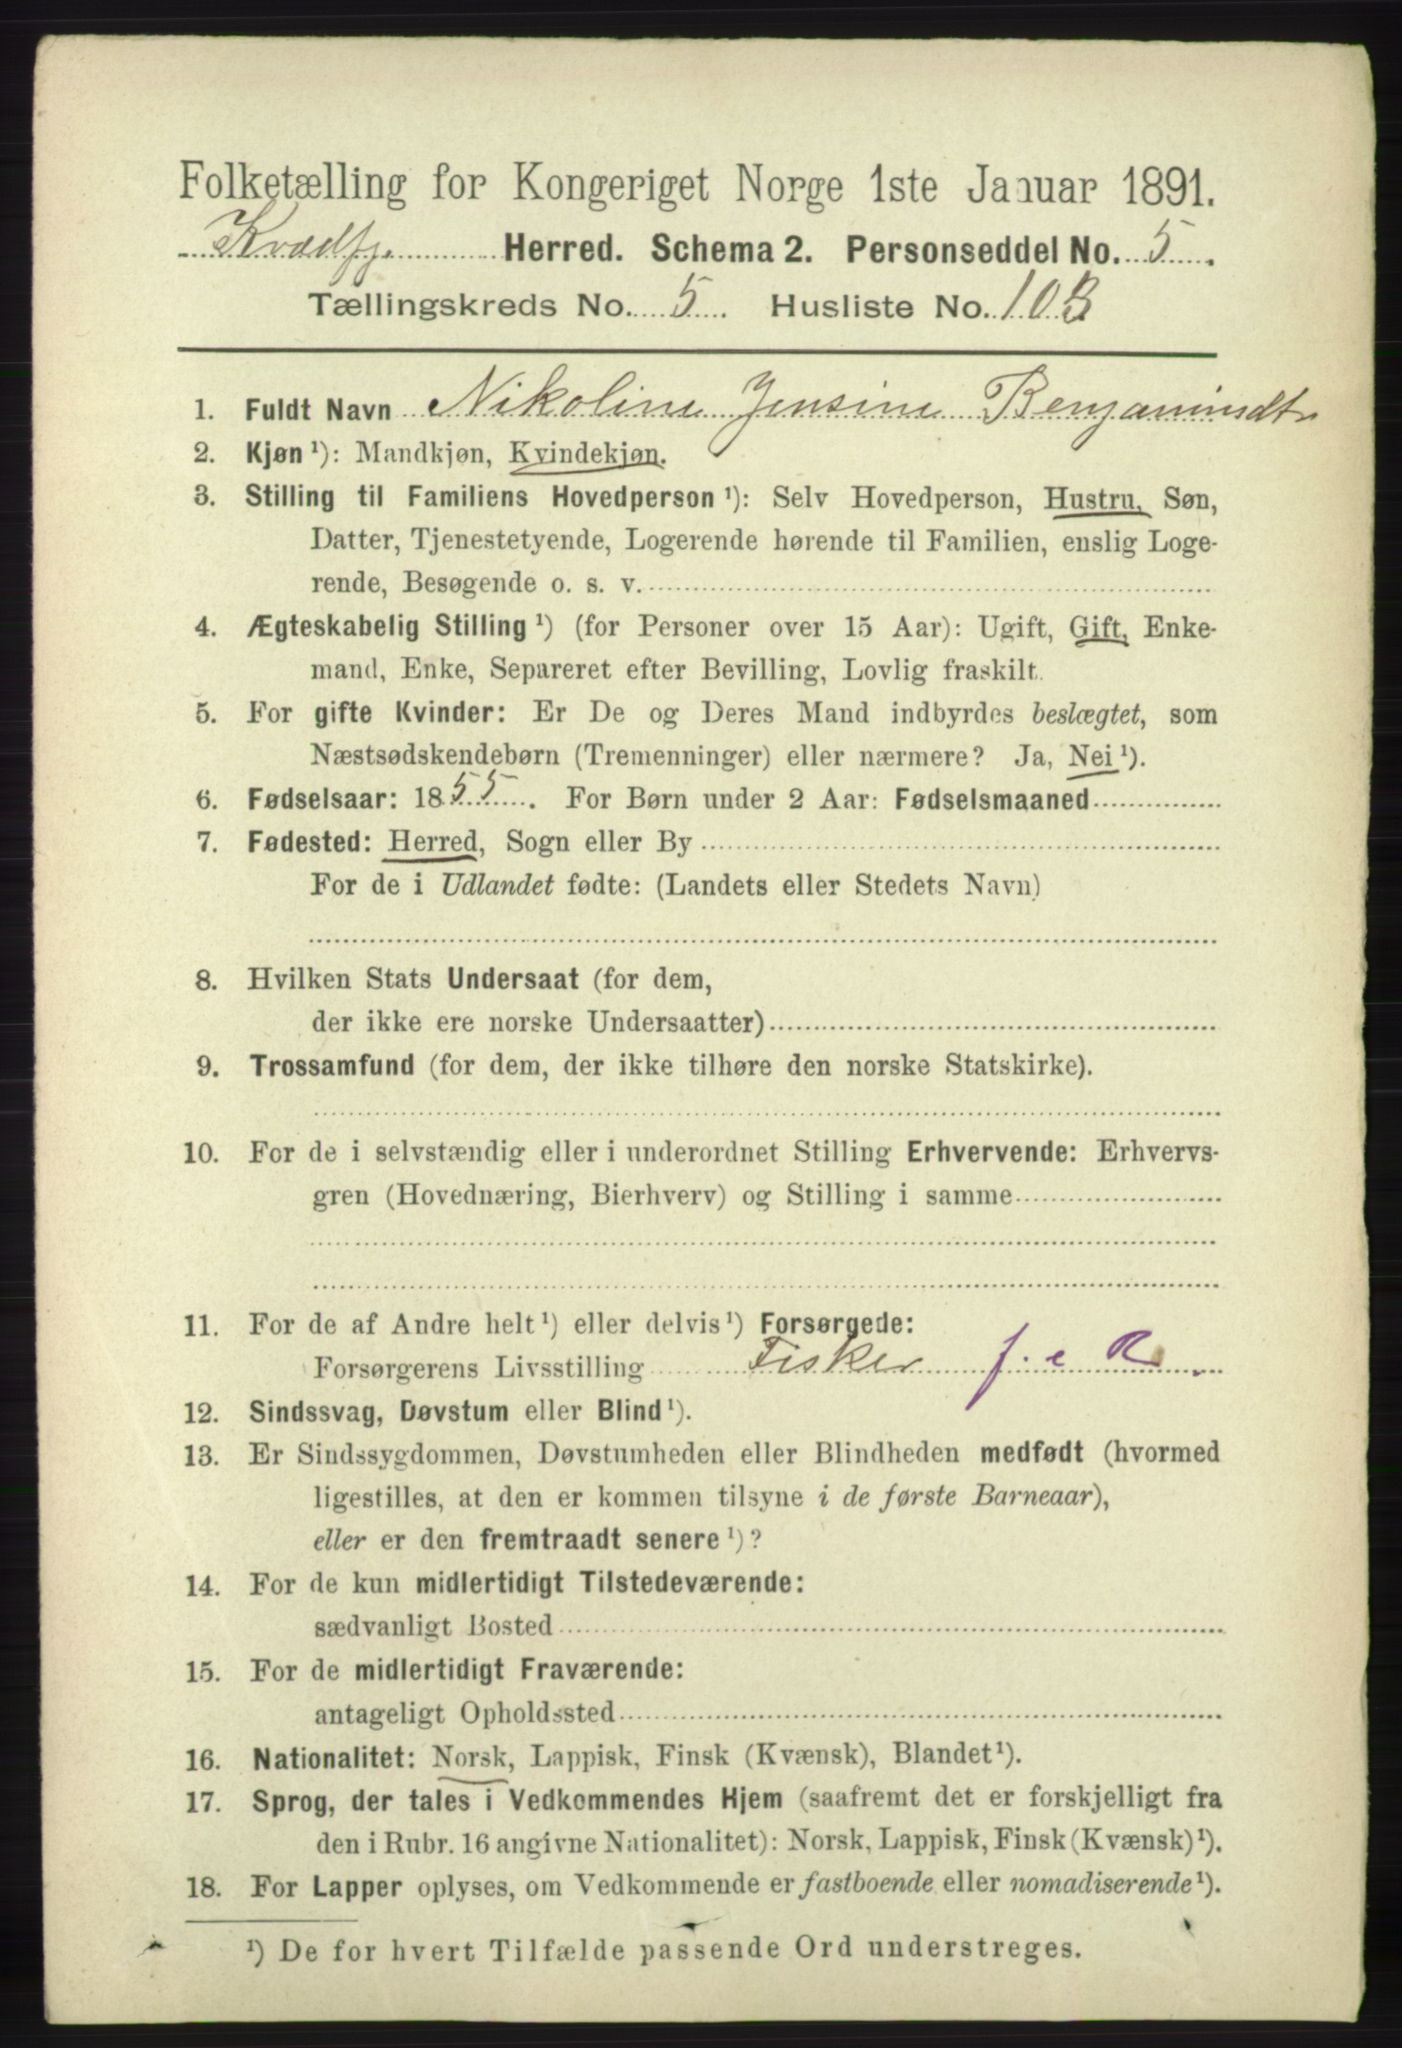 Folketælling for Kongeriget Norge 1ste Januar 1891.
Kvædfj. Herred. Schema 2. Personseddel No. 5.
Tællingskreds No. 5. Husliste No. 103
1. Fuldt Navn Nikoline Jensine Benjamindtr
2. Kjøn ¹): Mandkjøn, Kvindekjøn.
3. Stilling til Familiens Hovedperson ¹): Selv Hovedperson, Hustru, Søn,
Datter, Tjenestetyende, Logerende hørende til Familien, enslig Loge-
rende, Besøgende o. s. v.
4. Ægteskabelig Stilling ¹) (for Personer over 15 Aar): Ugift, Gift, Enke-
mand, Enke, Separeret efter Bevilling, Lovlig fraskilt.
5. For gifte Kvinder: Er De og Deres Mand indbyrdes beslægtet, som
Næstsødskendebørn (Tremenninger) eller nærmere? Ja, Nei ¹).
6. Fødselsaar: 1855. For Børn under 2 Aar: Fødselsmaaned
7. Fødested: Herred, Sogn eller By
For de i Udlandet fødte: (Landets eller Stedets Navn)
8. Hvilken Stats Undersaat (for dem,
der ikke ere norske Undersaatter)
9. Trossamfund (for dem, der ikke tilhøre den norske Statskirke).
10. For de i selvstændig eller i underordnet Stilling Erhvervende: Erhvervs-
gren (Hovednæring, Bierhverv) og Stilling i samme
11. For de af Andre helt ¹) eller delvis ¹) Forsørgede:
Forsørgerens Livsstilling Fisker f. e R.
12. Sindssvag, Døvstum eller Blind ¹).
13. Er Sindssygdommen, Døvstumheden eller Blindheden medfødt (hvormed
ligestilles, at den er kommen tilsyne i de første Barneaar),
eller er den fremtraadt senere ¹)?
14. For de kun midlertidigt Tilstedeværende:
sædvanligt Bosted
15. For de midlertidigt Fraværende:
antageligt Opholdssted
16. Nationalitet: Norsk, Lappisk, Finsk (Kvænsk), Blandet ¹).
17. Sprog, der tales i Vedkommendes Hjem (saafremt det er forskjelligt fra
den i Rubr. 16 angivne Nationalitet): Norsk, Lappisk, Finsk (Kvænsk) ¹).
18. For Lapper oplyses, om Vedkommende er fastboende eller nomadiserende ¹).
¹) De for hvert Tilfælde passende Ord understreges.